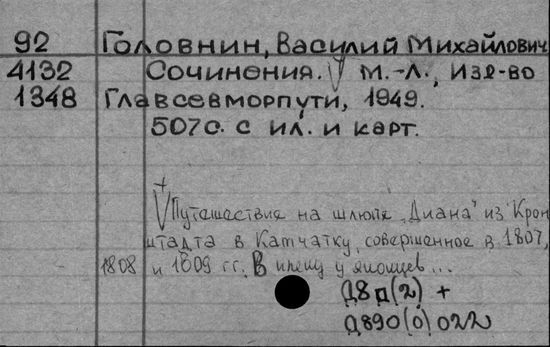 92 Головнин, Василий Михайлович
4132 Сочинения. М.-Л., Изд-во
1348 Главсевморпути, 1949.
507с. с ил. и карт.
Путешествия на шлюпе „Диана" из Крон
штадта в Камчатку, совершенное в 1807,
1808 и 1809 гг. В плену у японцев...
Д8д(2) +
Д890(0)022